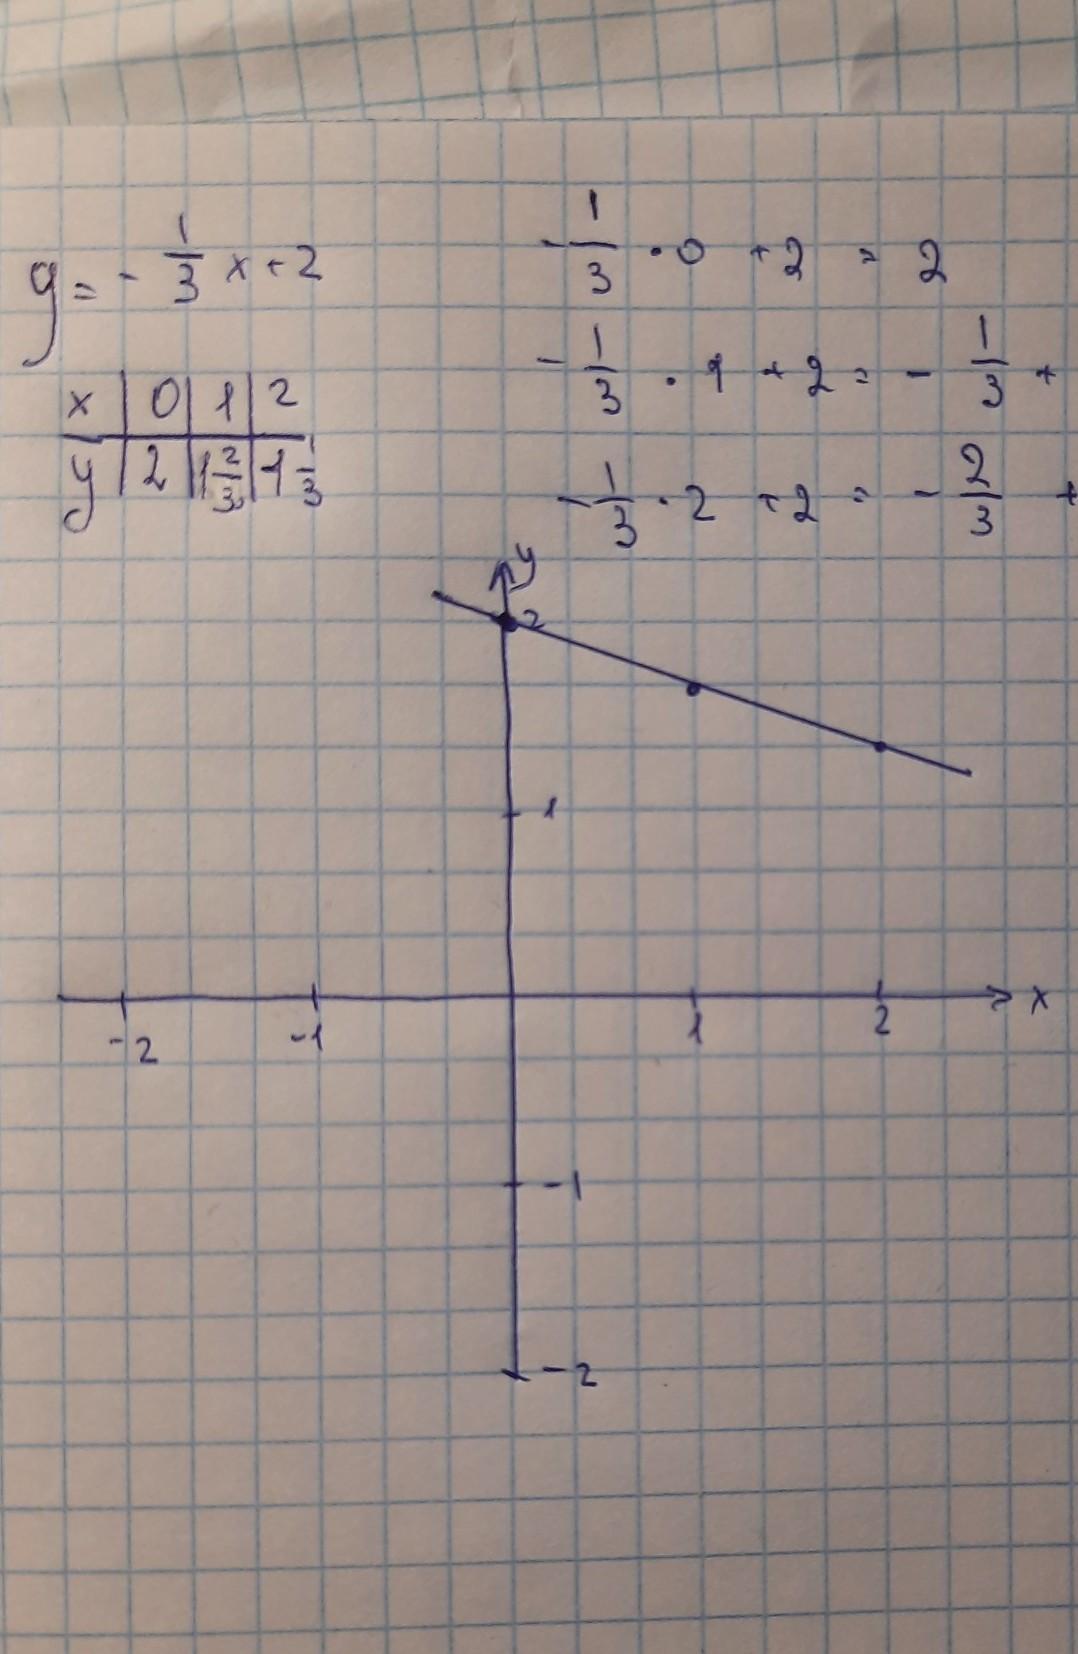 y = - 1/3 x + 2
x | 0 | 1 | 2
y | 2 | 1 2/3 | 1 1/3
- 1/3 · 0 + 2 = 2
- 1/3 · 1 + 2 = - 1/3 +
- 1/3 · 2 + 2 = - 2/3 +
y
2
1
-2 -1 1 2 x
-1
-2